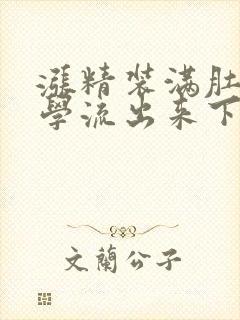 漲精装满肚
學流出来下
文蘭公子